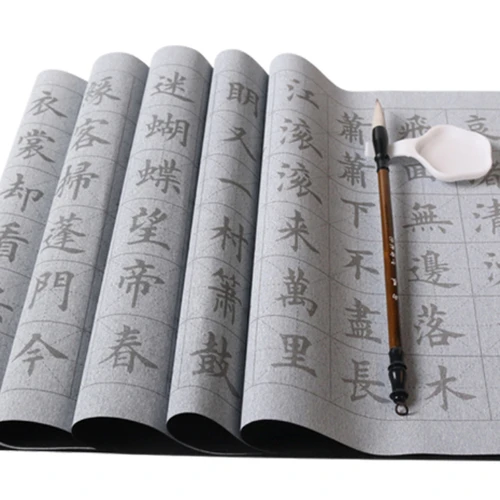 清
飛回無邊落木
蕭蕭下不盡長
江滾滾來萬里
明又一村簫鼓
迷蝴蝶望帝春
緣客掃蓬門今
衣裳却看